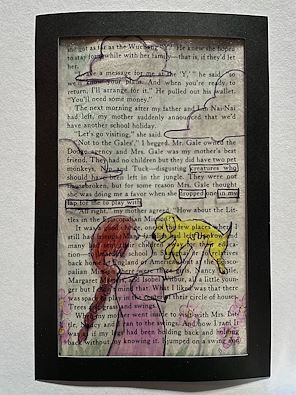 she got as far as the Wuchang. He knew she hoped
to stay for a while with her family—that is, if they'd let
her.
"Leave a message for me at the 'Y,'" he said, "so
we'll know your plans. And when you're ready to
return, I'll arrange for it." He pulled out his wallet.
"You'll need some money."
The next morning after my father and Lin Nai-Nai
had left, my mother suddenly announced that we'd
have another school holiday.
"Let's go visiting," she said.
"Not to the Gales'," I begged. Mr. Gale owned the
Dodge agency and Mrs. Gale was my mother's best
friend. They had no children but they did have two pet
monkeys, N and Tuck—disgusting creatures who
should have been left in the jungle. They were not
housebroken, but for some reason Mrs. Gale thought
she was doing me a favor when she dropped one in my
lap for me to play with.
"All right," my mother agreed. "How about the Lit-
tles in the Episcopalian Mission?"
It was a few places
left the
tion—
back home England or America
palian Miss were three Nancy Little,
Margaret Isobel Wilbur, a little young-
er but I What I liked was that there
was space to play in their circle of houses.
Trees and grass and swings.
When my mother went inside to visit with Mrs. Lit-
tle, Nancy and I ran to the swings. And how I ran! It
was as if my legs had been holding back and holding
back without my knowing it. I jumped on a swing and